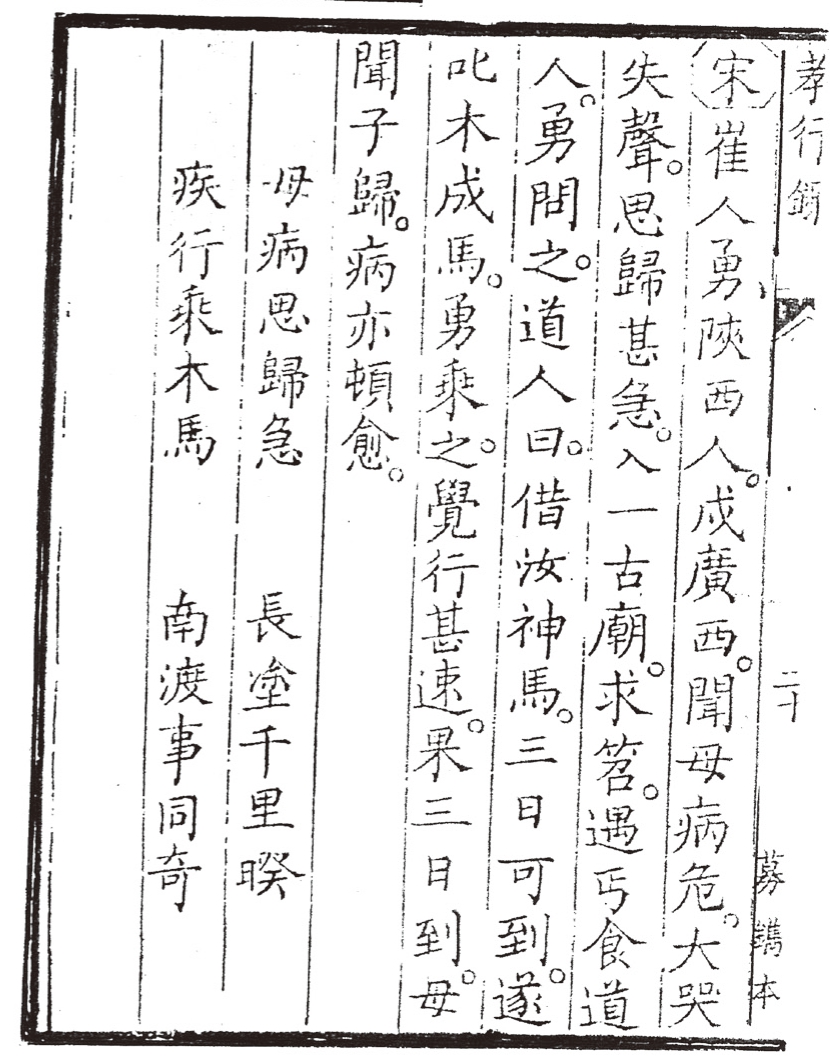 孝行錄 二十 募鐫本
宋崔人勇陝西人。戍廣西。聞母病危。大哭
失聲。思歸甚急。入一古廟。求筶。遇丐食道
人。勇問之。道人曰。借汝神馬。三日可到。遂
叱木成馬。勇乘之。覺行甚速。果三日到。母
聞子歸。病亦頓愈。
母病思歸急 長塗千里暌
疾行乘木馬 南渡事同奇